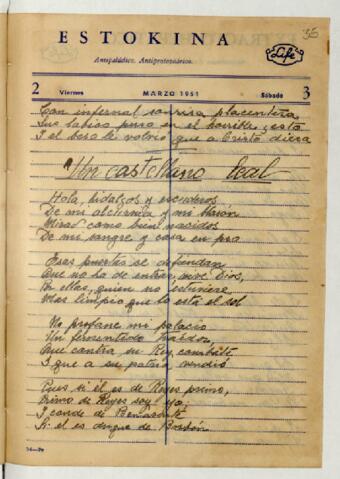 36
ESTOKINA
Antipalúdico. Antiprotozoárico.
Life
2 Viernes MARZO 1951 Sábado 3
Con infernal sonrisa placentera
Sus labios puso en el horrible, esto
I el beso le volvió que a Cristo diera
Un castellano leal
Hola, hidalgos y escuderos
De mi alcurnia y mi blasón
Mirad como bien nacidos
De mi sangre y casa en pro
Esas puertas se defiendan
Que no ha de entrar, vive Dios,
Por ellas, quien no estuviere
Mas limpio que lo está el sol
No profane mi palacio
Un fementido traidor
Que contra su Rey combate
I que a su patria vendió
Pues si él es de Reyes primo,
Primo de Reyes soy yo
I conde de Benavente
Si él es duque de Borbón